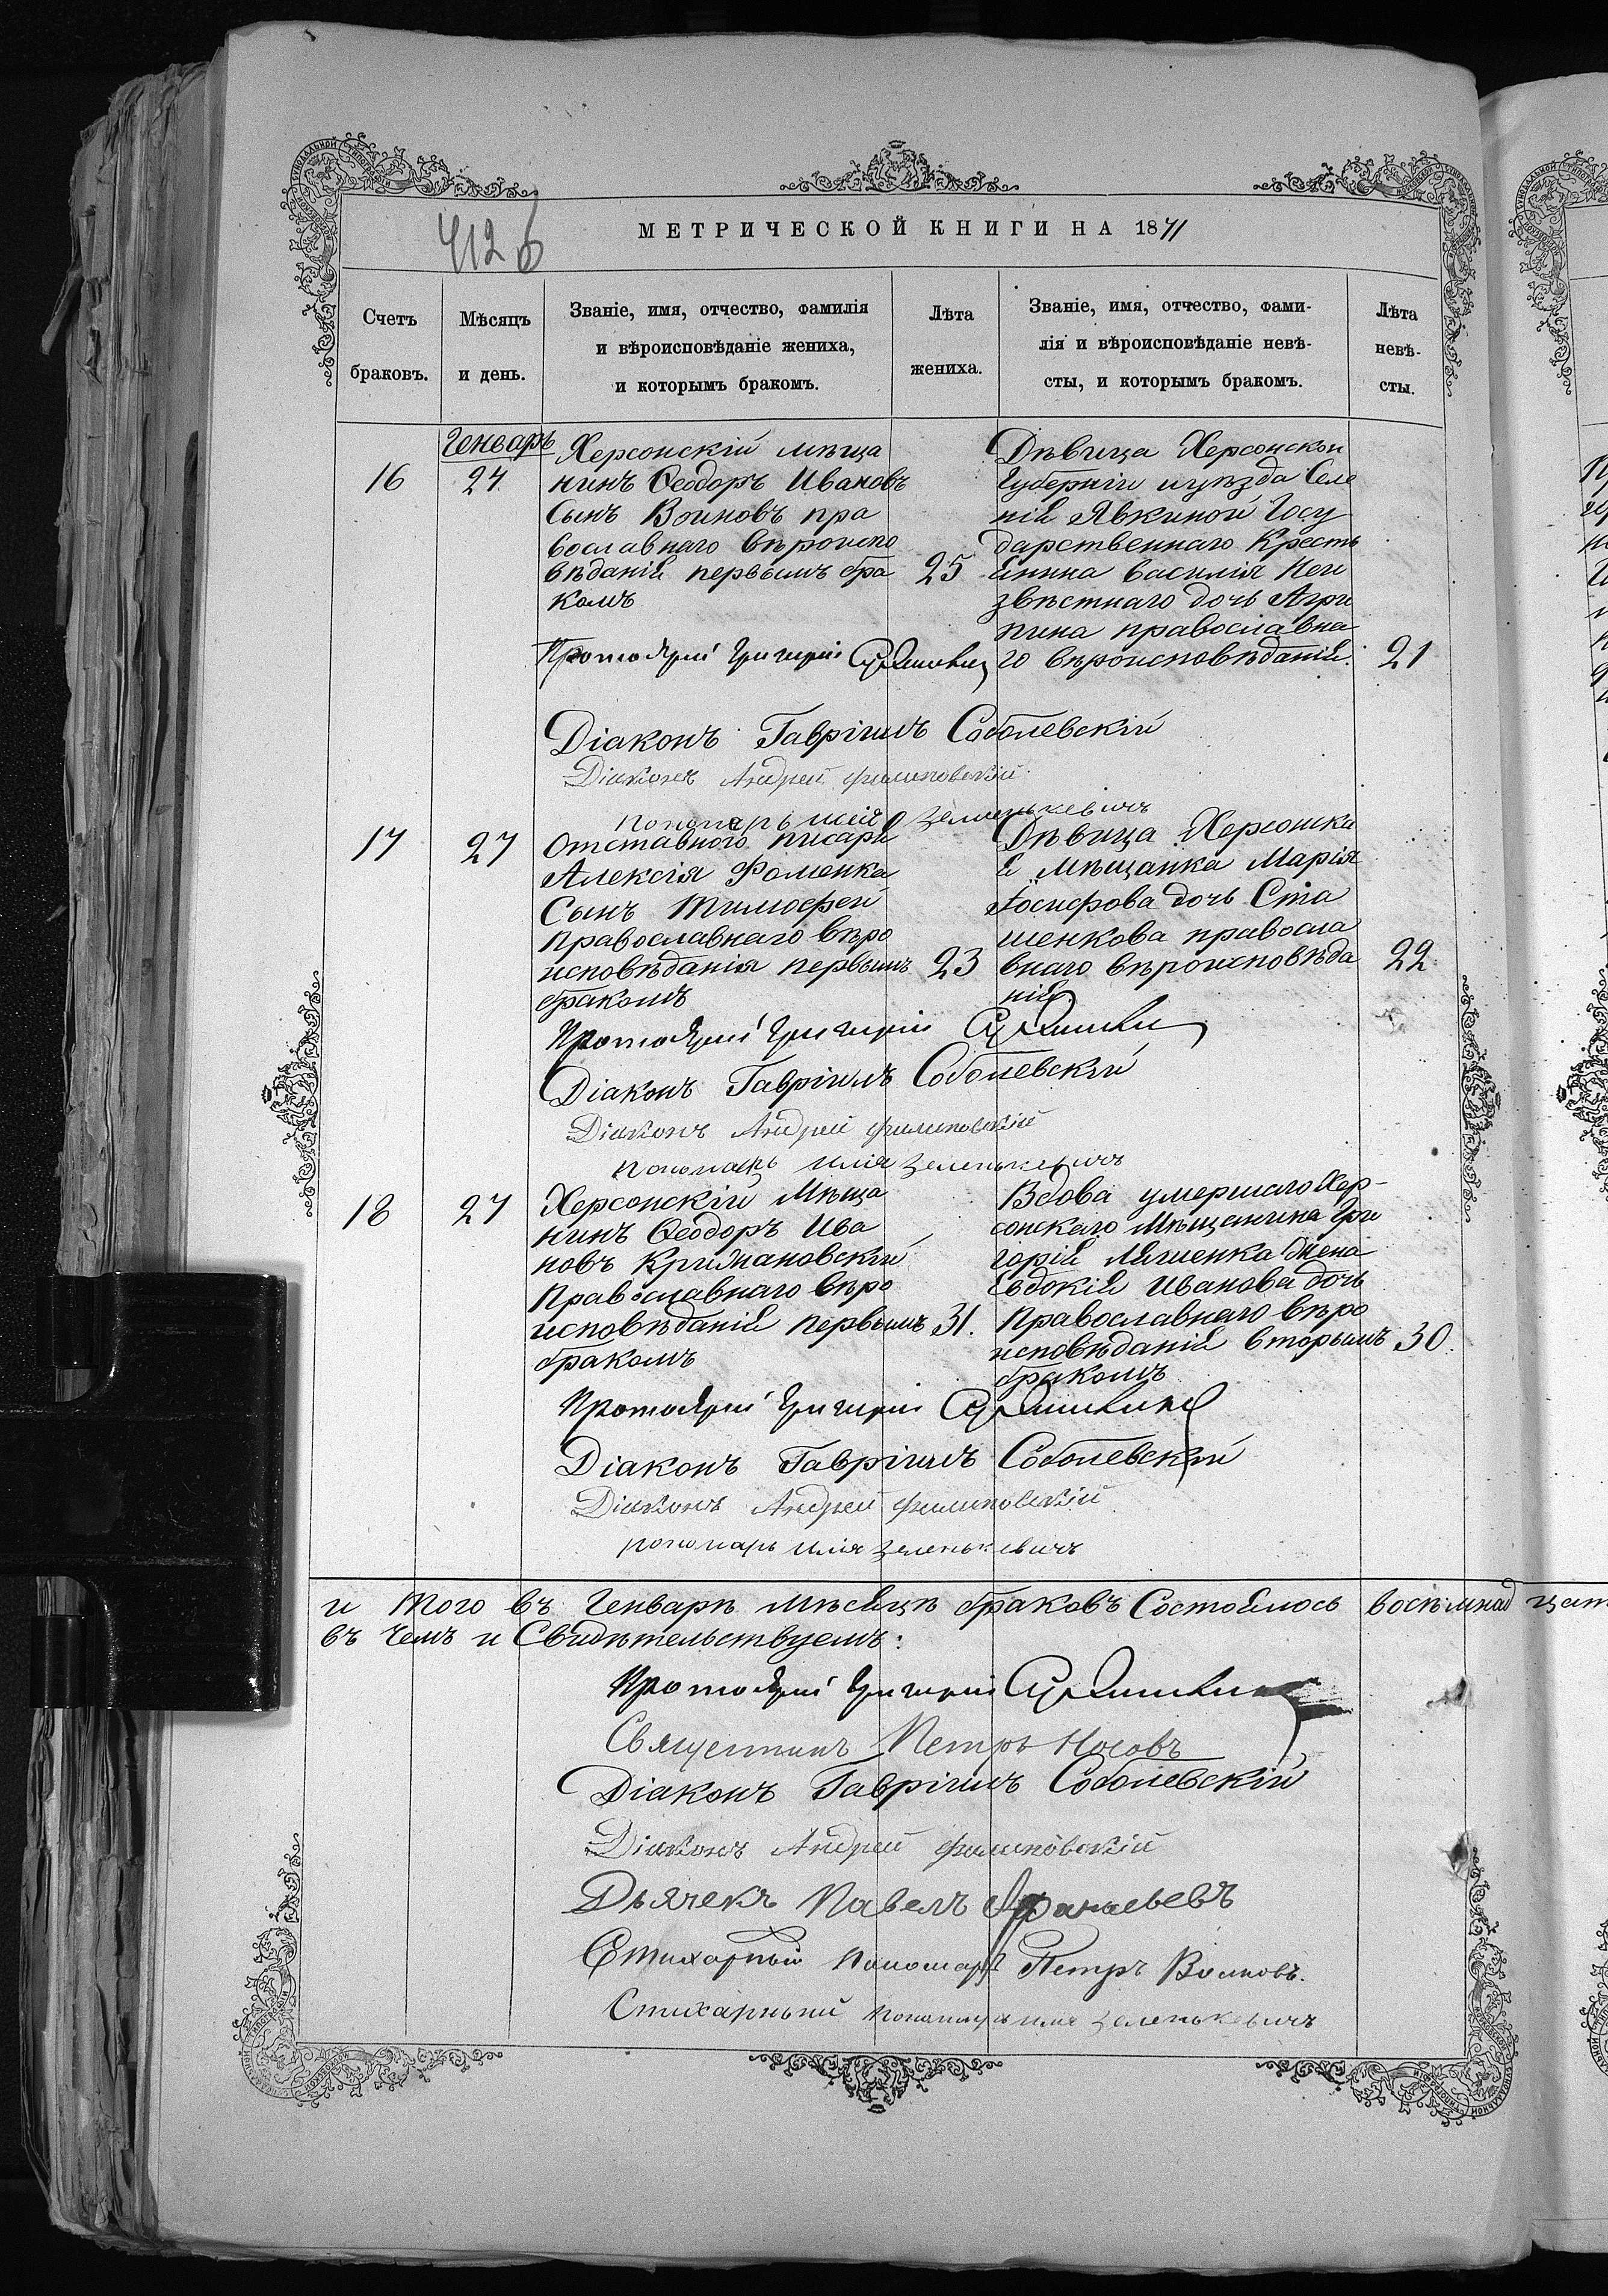 412 б
МЕТРИЧЕСКОЙ КНИГИ НА 1871
Счетъ браковъ.
Мѣсяцъ и день.
Званіе, имя, отчество, фамилія
и вѣроисповѣданіе жениха,
и которымъ бракомъ.
Лѣта жениха.
Званіе, имя, отчество, фами-
лія и вѣроисповѣданіе невѣ-
сты, и которымъ бракомъ.
Лѣта невѣ-
сты.
Генварь
16
24
Херсонскій мѣща
нинъ Ѳеодоръ Ивановъ
Сынъ Воиновъ пра
вославнаго вѣроиспо
вѣданія первымъ бра
комъ
25
Дѣвица Херсонской
Губерніи и уѣзда Селе
нія Явкиной Госу
дарственнаго Кресть
янина Василія Неи
звѣстнаго дочь Агри
пина православна
го вѣроисповѣданія.
21
Протоіерей Григорій
Діаконъ Гавріилъ Соболевскій
Діаконъ Андрей Филиповскій
пономарь Илія Зеленькевичъ
17
27
Отставного писаря
Алексія Фоменка
Сынъ Тимофей
Православнаго вѣро
исповѣданія первымъ
бракомъ
23
Дѣвица Херсонска
я Мѣщанка Марія
Іосифова дочь Ста
шенкова правосла
внаго вѣроисповѣда
нія
22
Протоіерей Григорій
Діаконъ Гавріилъ Соболевскій
Діаконъ Андрей Филиповскій
пономарь Илія Зеленькевичъ
18
27
Херсонскій Мѣща
нинъ Ѳеодоръ Ива
новъ Крижановскій
Православнаго вѣро
исповѣданія первымъ
бракомъ
31.
Вдова умершаго Хер-
сонскаго Мѣщанина Гри
горія Ляшенка жена
Евдокія Иванова дочь
Православнаго вѣро
исповѣданія вторымъ
бракомъ
30.
Протоіерей Григорій
Діаконъ Гавріилъ Соболевскій
Діаконъ Андрей Филиповскій
пономарь Илія Зеленькевичъ
и Того въ Генварѣ Мѣсяцѣ браковъ Состоялось восѣмнадцат
въ чемъ и Свидѣтельствуемъ:
Протоіерей Григорій
Священникъ Петръ Носовъ
Діаконъ Гавріилъ Соболевскій
Діаконъ Андрей Филиповскій
Дьячекъ Павелъ Афанасьевъ
Стихарный Пономарь Петръ Волковъ.
Стихарный пономарь Илія Зеленькевичъ